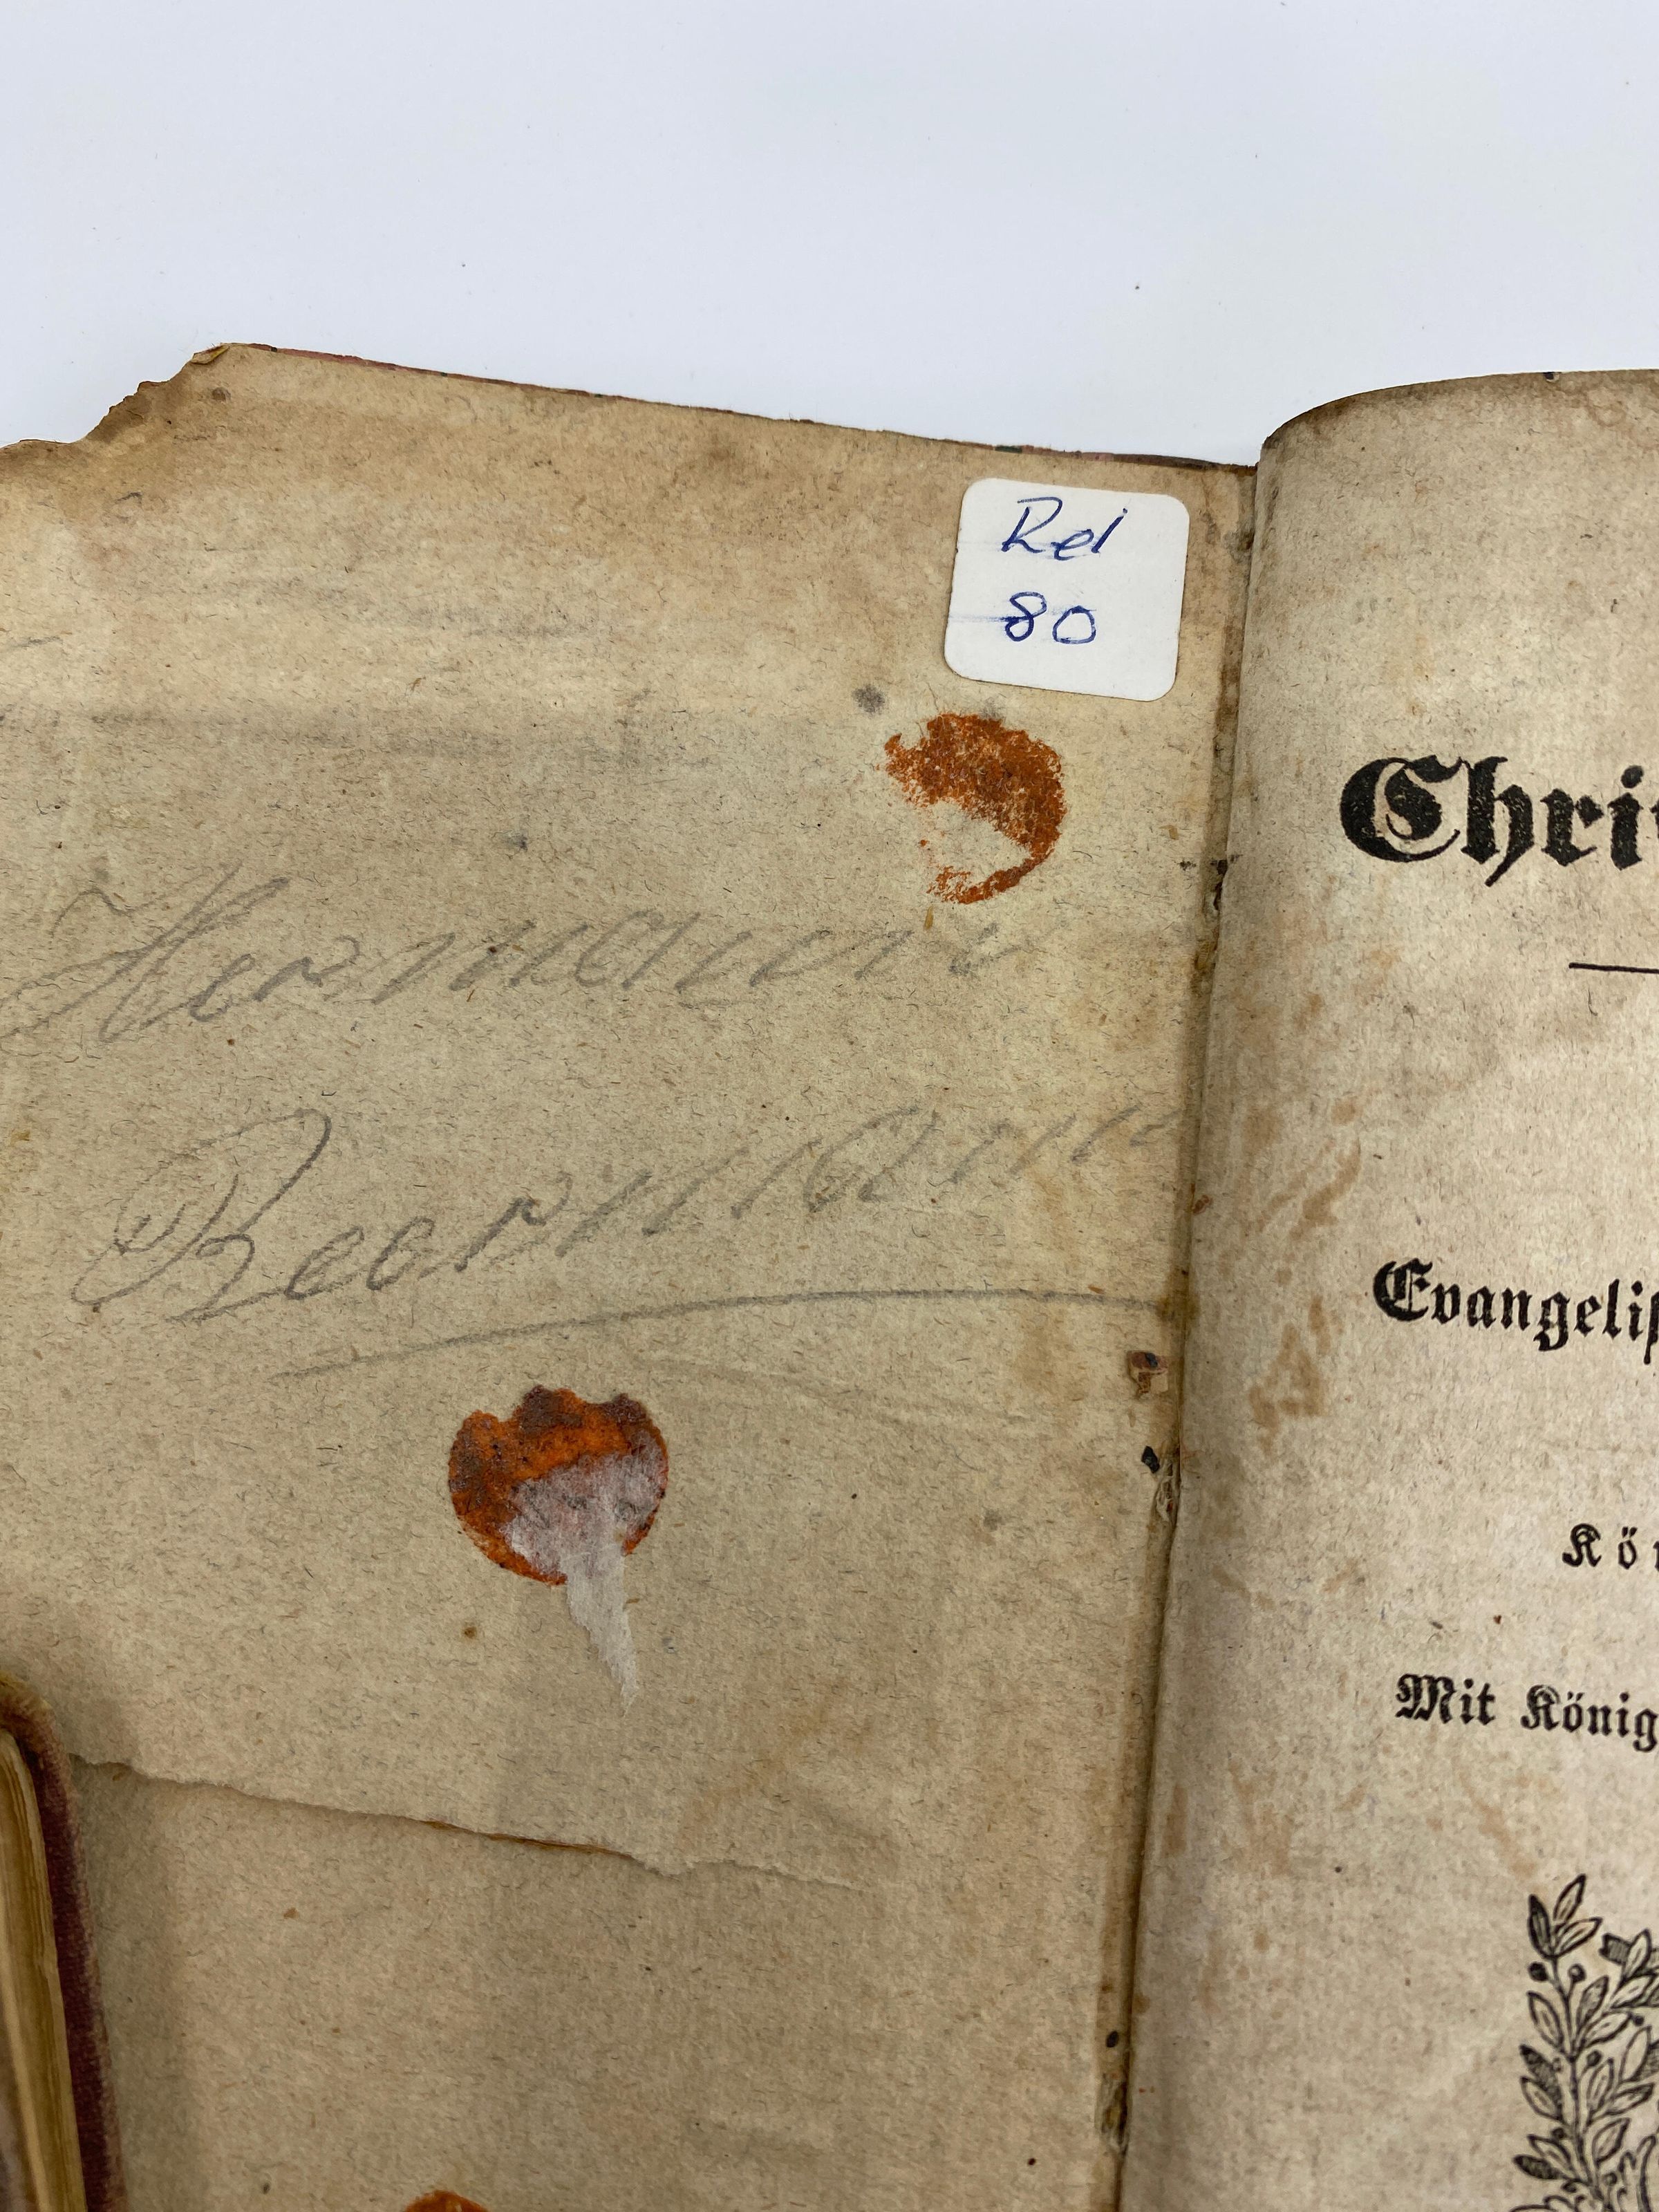 Rel
80
Hermann
Beermann
Chri
Evangelis
Kön
Mit König